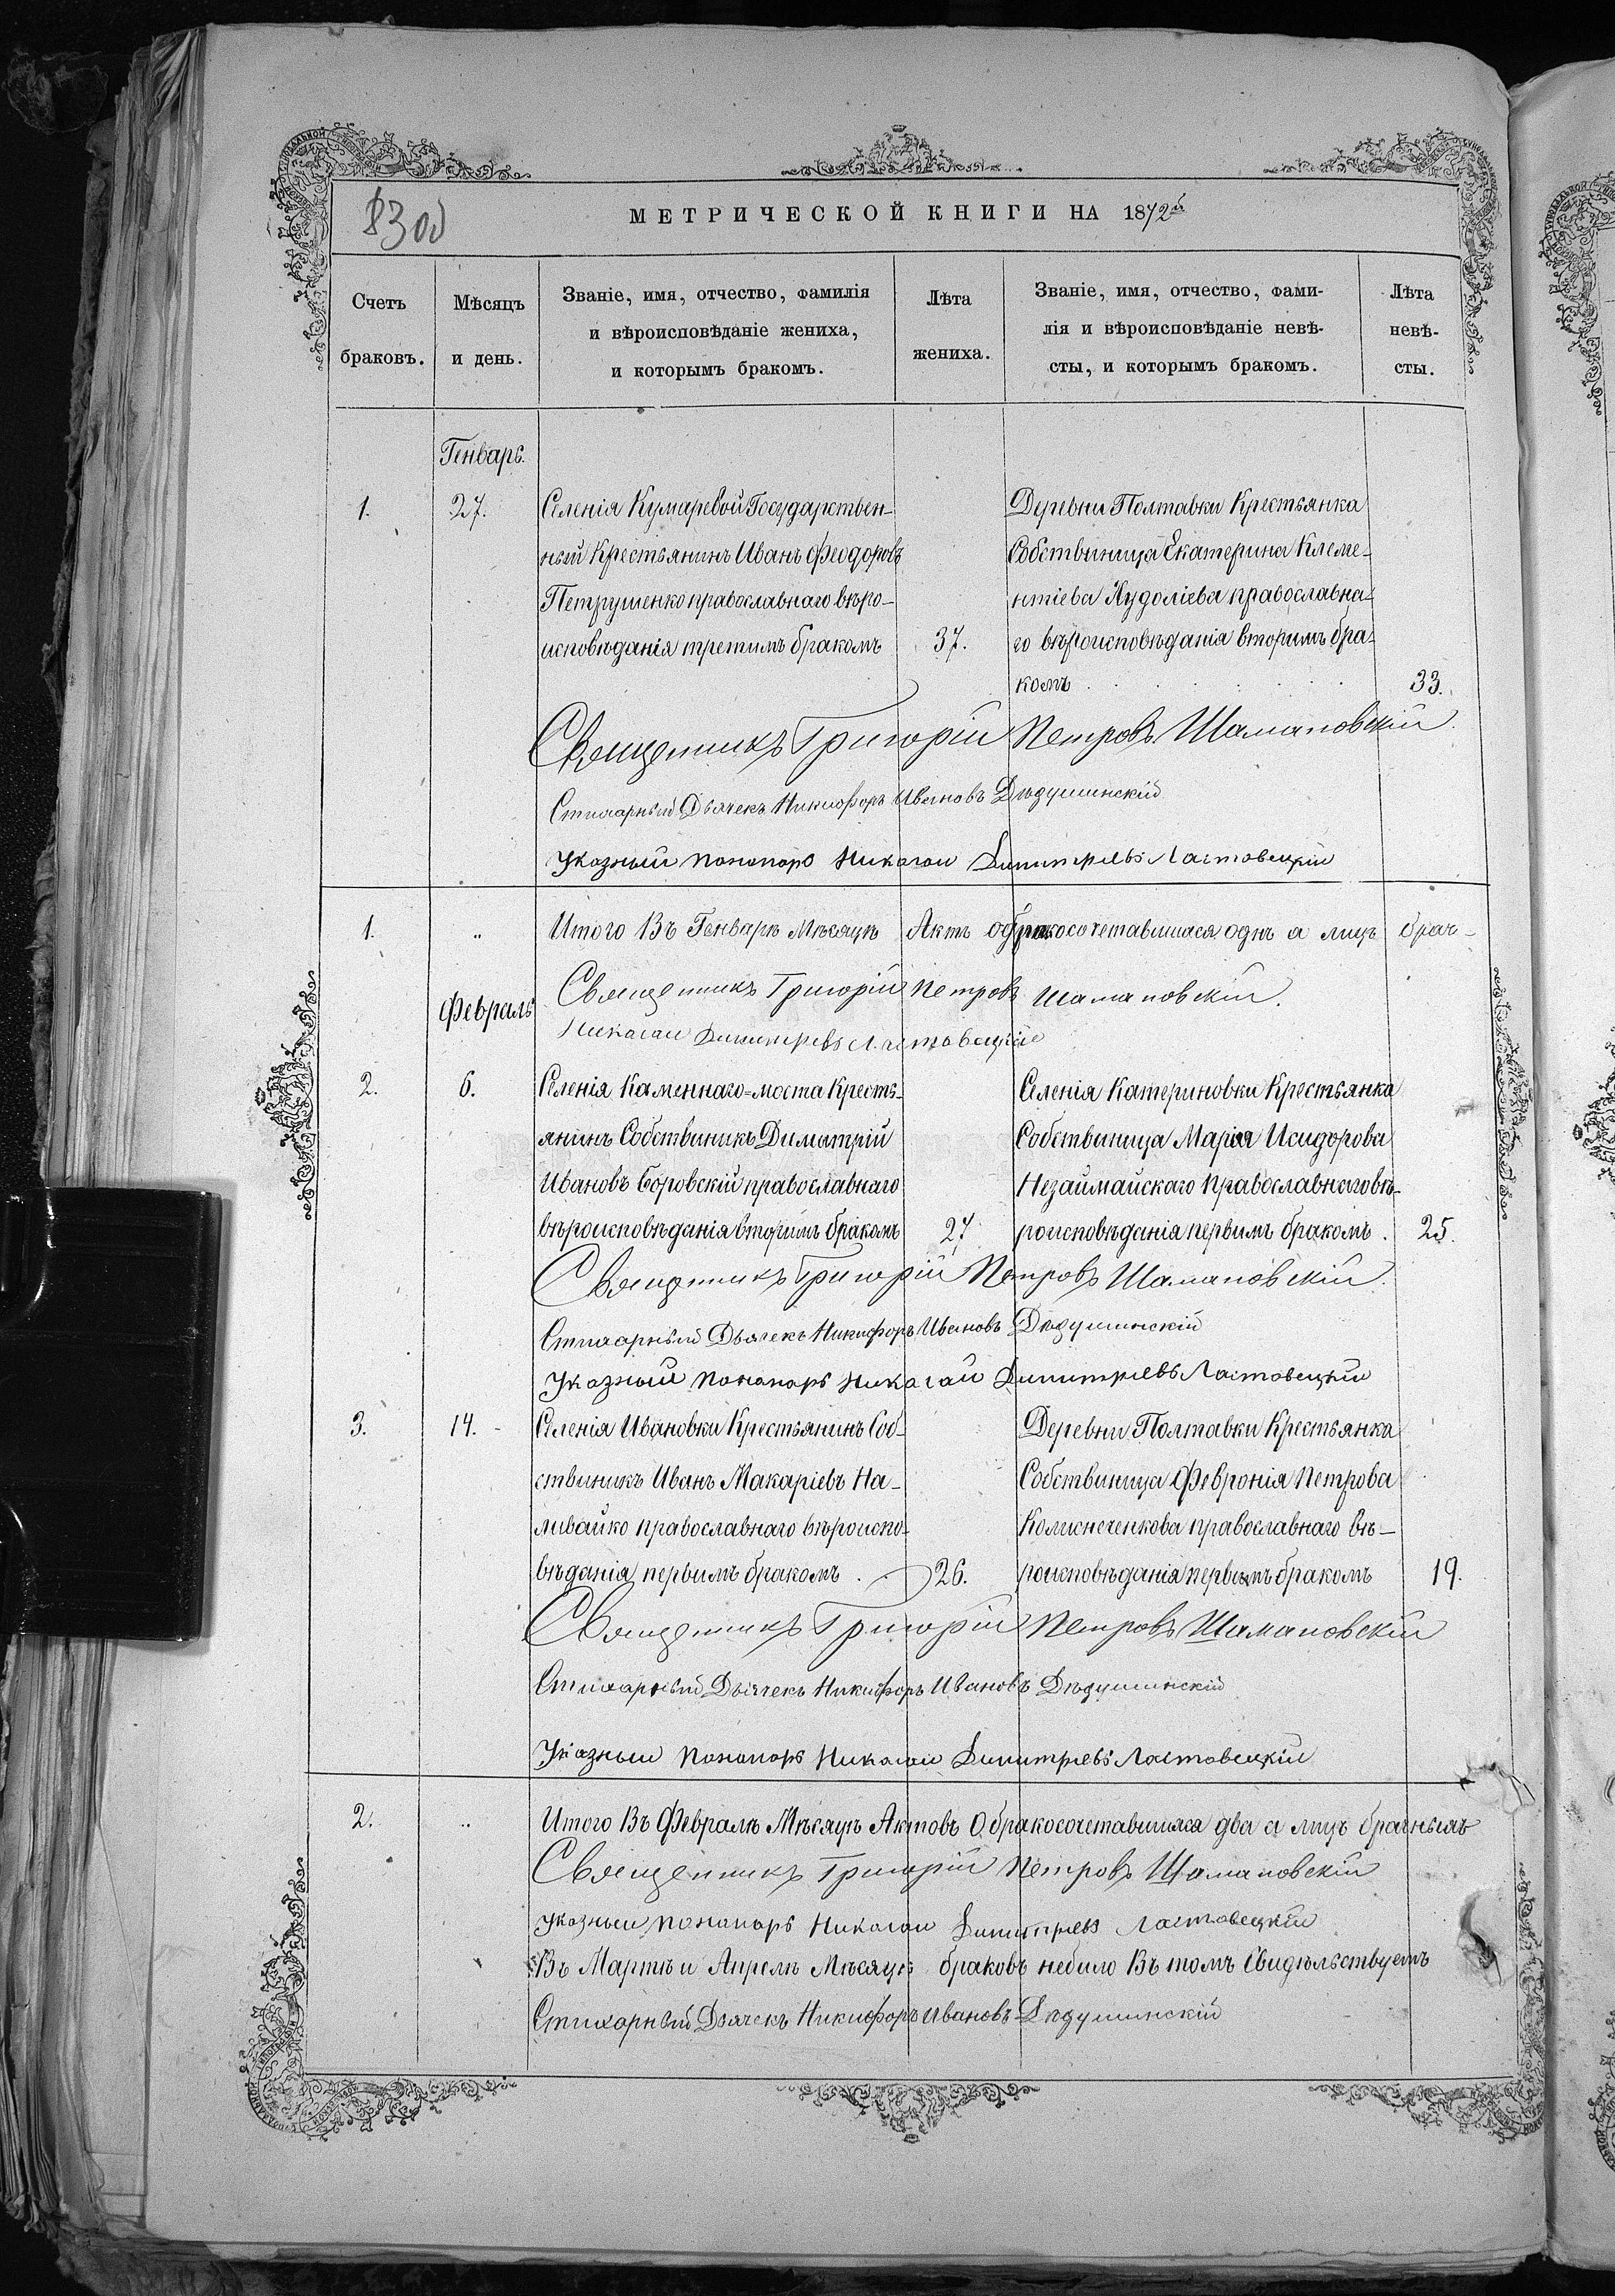 830об
МЕТРИЧЕСКОЙ КНИГИ НА 1872й
Счетъ браковъ.
Мѣсяцъ и день.
Званіе, имя, отчество, фамилія
и вѣроисповѣданіе жениха,
и которымъ бракомъ.
Лѣта жениха.
Званіе, имя, отчество, фами-
лія и вѣроисповѣданіе невѣ-
сты, и которымъ бракомъ.
Лѣта невѣ-
сты.
Генварь.
1.
27.
Селенія Кумаревой Государствен-
ный Крестьянинъ Иванъ Феодоровъ
Петрушенко православнаго вѣро-
исповѣданія третимъ бракомъ
37.
Деревни Полтавки Крестьянка
Собствиница Екатерина Клеме-
нтіева Худоліева православна-
го вѣроисповѣданія вторимъ бра-
комъ
33.
Священникъ Григорій Петровъ Шамановскій
Стихарный Дьячекъ Никифоръ Ивановъ Дѣдушинскій
Указный пономарь Николай Димитріевъ Ластовецкій
1.
"
Итого Въ Генварѣ Мѣсяцѣ Актъ о бракосочетавшихся одиъ а лицъ брач-
Священникъ Григорій Петровъ Шамановскій.
Николай Димитріевъ Ластовецкій
Февраль
2.
6.
Селенія Каменнаго-моста Кресть-
янинъ Собствиникъ Димытрій
Ивановъ Боровскій православнаго
вѣроисповѣданія вторимъ бракомъ
27
Селенія Катериновки Крестьянка
Собствиница Марія Исидорова
Незаймайскаго Православнаго вѣ-
роисповѣданія первимъ бракомъ.
25.
Священникъ Григорій Петровъ Шамановскій.
Стихарный Дьячекъ Никифоръ Ивановъ Дѣдушинскій
Указный пономарь Николай Димитріевъ Ластовецкій
3.
14.
Селенія Ивановки Крестьянинъ Соб-
ствиникъ Иванъ Макаріевъ На-
ливайко православнаго вѣроиспо-
вѣданія первимъ бракомъ
26.
Деревни Полтавки Крестьянка
Собствиница Февронія Петрова
Колисниченкова православнаго вѣ-
роисповѣданія первимъ бракомъ
19.
Священникъ Григорій Петровъ Шамановскій
Стихарный Дьячекъ Никифоръ Ивановъ Дѣдушинскій
Указный пономарь Николай Димитріевъ Ластовецкій
2.
"
Итого Въ Февралѣ Мѣсяцѣ Актовъ О бракосочетавшихся два а лицъ брачныхъ
Священникъ Григорій Петровъ Шамановскій
Указный пономарь Николай Димитріевъ Ластовецкій
Въ Мартѣ и Апрелѣ Мѣсяцѣ браковъ небило Въ томъ Свидѣльствуетъ
Стихарный Дьячекъ Никифоръ Ивановъ Дѣдушинскій